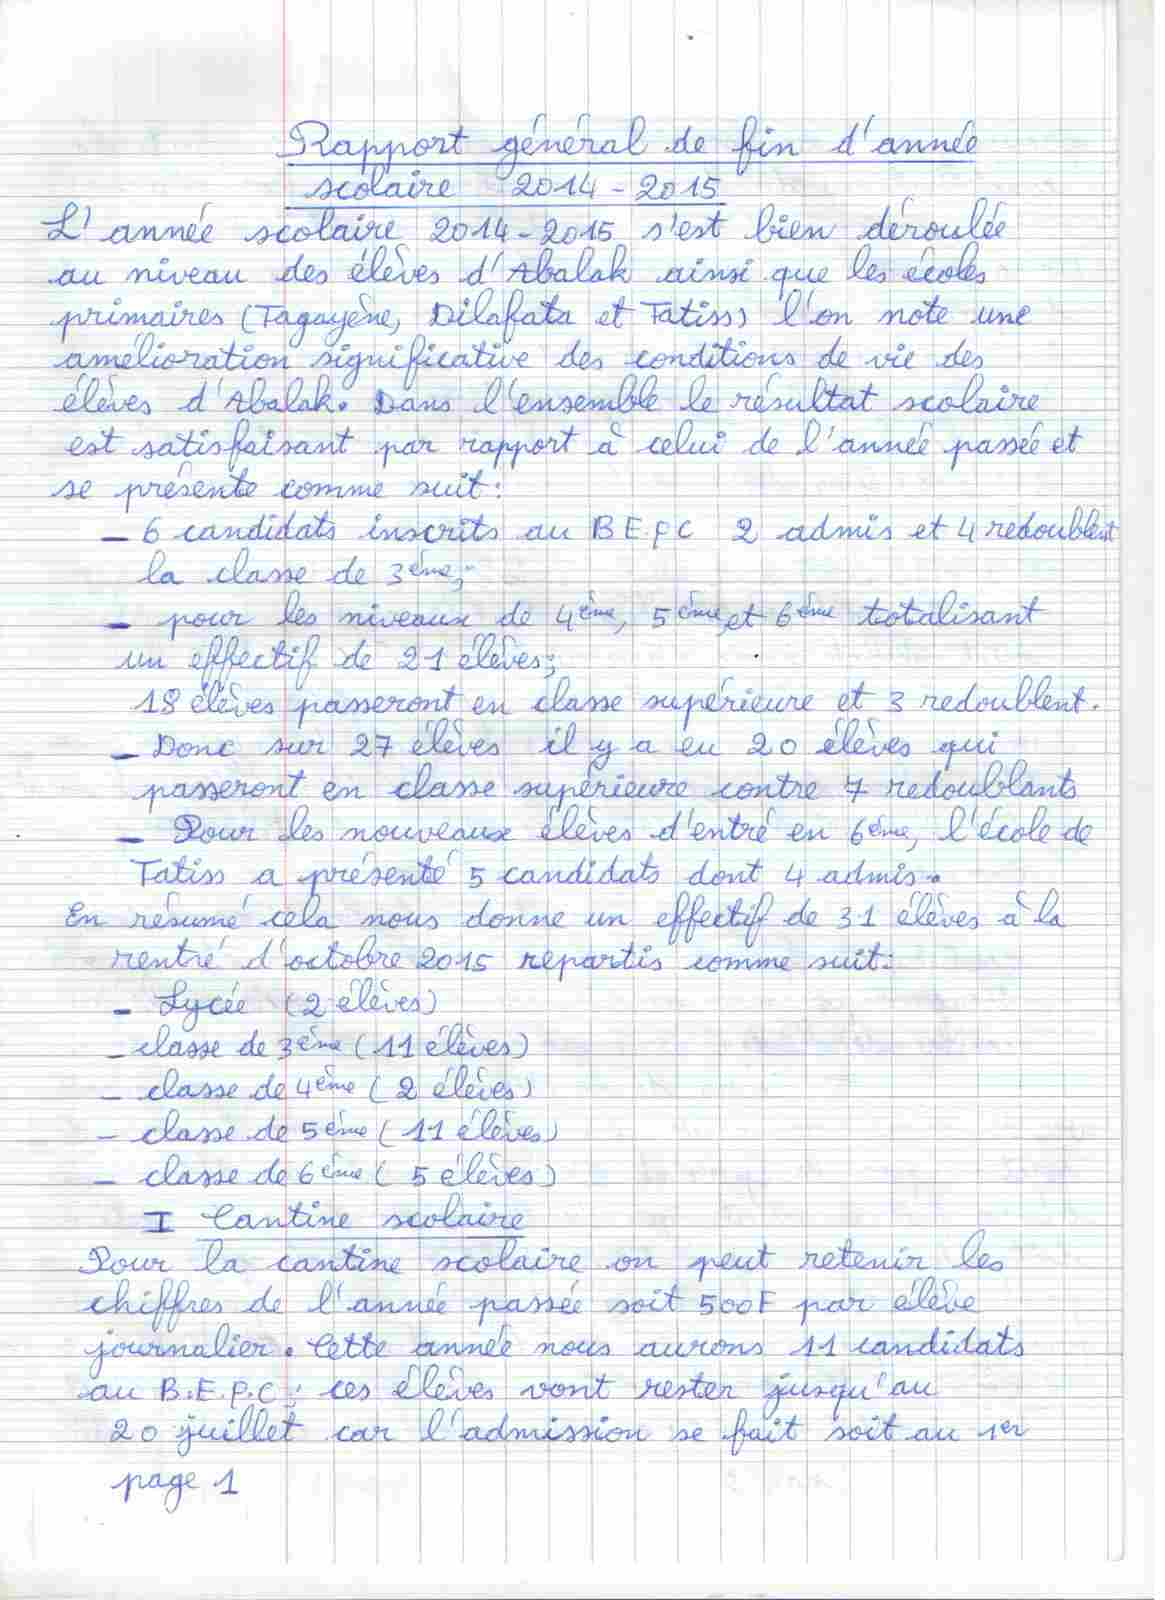 Rapport général de fin d'année
scolaire 2014-2015
L'année scolaire 2014-2015 s'est bien déroulée
au niveau des élèves d'Abalak ainsi que les écoles
primaires (Tagayène, Dilafata et Tatiss) l'on note une
amélioration significative des conditions de vie des
élèves d'Abalak. Dans l'ensemble le résultat scolaire
est satisfaisant par rapport à celui de l'année passée et
se présente comme suit:
- 6 candidats inscrits au B.E.P.C 2 admis et 4 redoublent
la classe de 3ème;
- pour les niveaux de 4ème, 5ème, et 6ème totalisant
un effectif de 21 élèves;
18 élèves passeront en classe supérieure et 3 redoublent.
- Donc sur 27 élèves il y a eu 20 élèves qui
passeront en classe supérieure contre 7 redoublants
- Pour les nouveaux élèves d'entré en 6ème, l'école de
Tatiss a présenté 5 candidats dont 4 admis.
En résumé cela nous donne un effectif de 31 élèves à la
rentré d'octobre 2015 repartis comme suit:
- Lycée (2 élèves)
- classe de 3ème (11 élèves)
- classe de 4ème (2 élèves)
- classe de 5ème (11 élèves)
- classe de 6ème (5 élèves)
I Cantine scolaire
Pour la cantine scolaire on peut retenir les
chiffres de l'année passée soit 500F par élève
journalier. Cette année nous aurons 11 candidats
au B.E.P.C; ces élèves vont rester jusqu'au
20 juillet car l'admission se fait soit au 1er
page 1